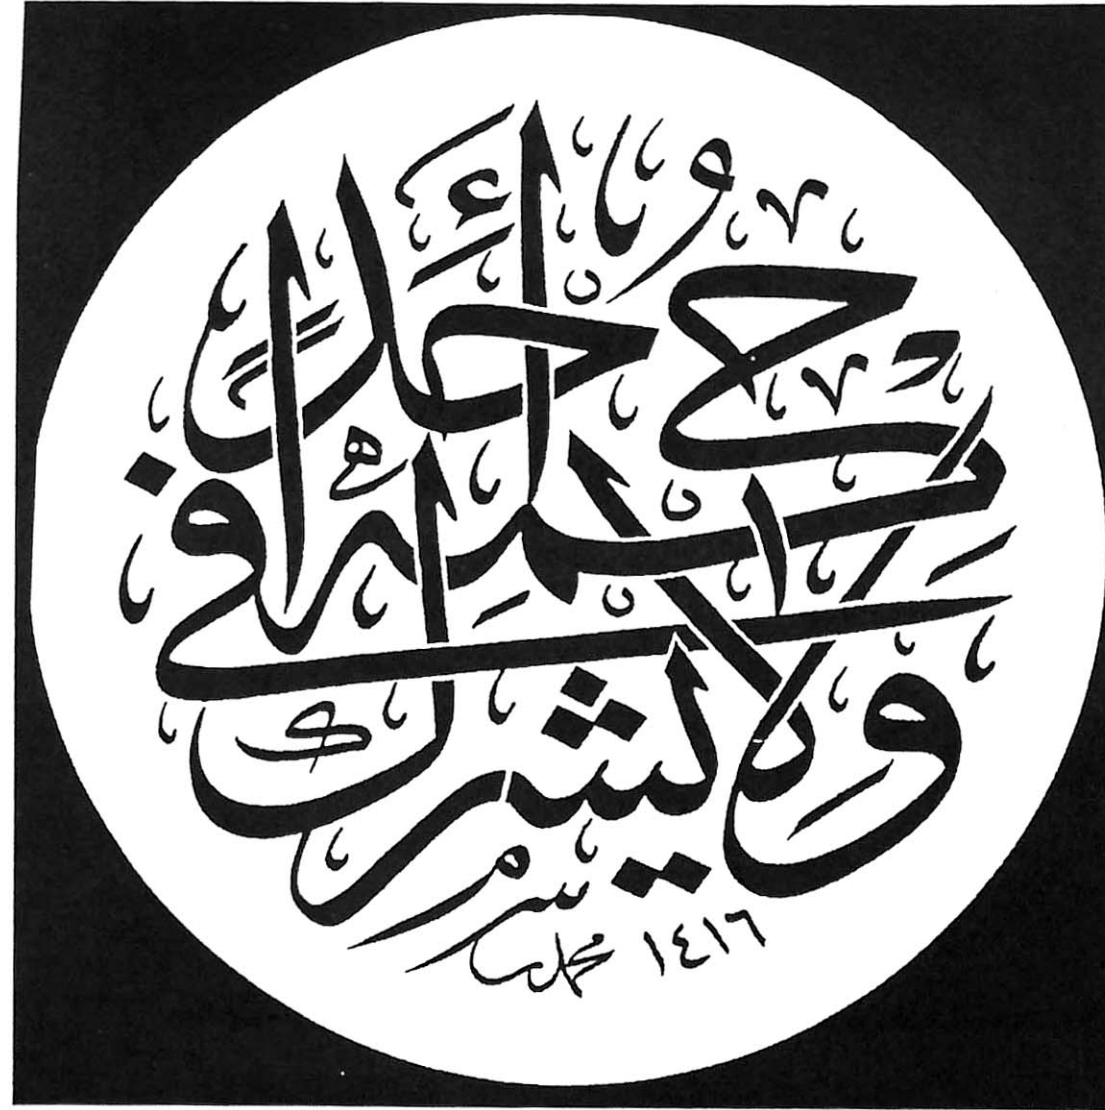 ولا يشرك في حكمه أحدا
محمد
١٤١٦